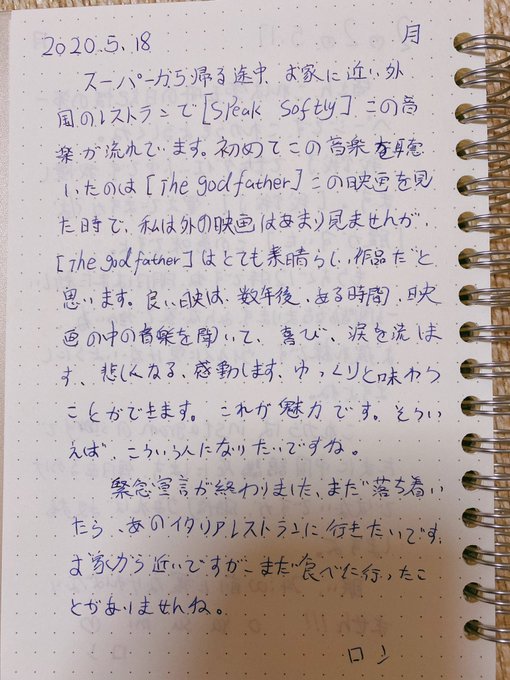 2020.5.18 月
スーパーから帰る途中、お家に近い外
国のレストランで[Speak Softly]この音
楽が流れています。初めてこの音楽を聴
いたのは[The godfather]この映画を見
た時で、私は外の映画はあまり見ませんが、
[The godfather]はとても素晴らしい作品だと
思います。良い映は、数年後、ある時間、映
画の中の音楽を聞いて、喜び、涙を流しま
す、悲しくなる、感動します、ゆっくりと味わう
ことができます。これが魅力です。そうい
えば、こういう人になりたいですね。
緊急宣言が終わりました、まだ落ち着い
たら、あのイタリアレストランに行きたいです。
お家から近いですが、まだ食べに行ったこ
とがありませんね。
ロン